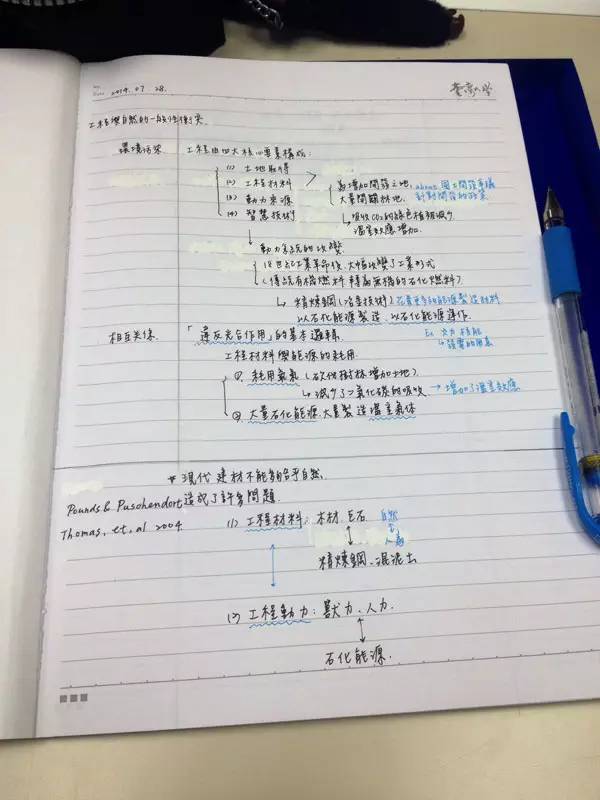 No.
Date 2014. 07 28.
工程與自然的一般性衝突
環境污染 工程由四大核心要素構成:
(1) 土地取得
(2) 工程材料
(3) 動力來源
(4) 智慧技術
為增加開發之地, about 國土開發爭議
大量開闢林地. 針對開發的政策
吸收CO2的綠色植物減少
溫室效應增加.
動力系統的改變
18世紀工業革命後,大幅改變了工業形式
(傳統有機燃料 轉為無機的石化燃料)
精煉鋼(冶金技術) 花費更多的能源製造材料
以石化能源製造,以石化能源運作.
相互关係 「違反光合作用」的基本邏輯. Ex 火力 核能
工程材料與能源的耗用. 發電的用意
①. 耗用氧氣 (砍伐樹林增加土地)
減少了二氧化碳的吸收 → 增加了溫室效應
②. 大量石化能源,大量製造溫室氣体
* 現代建材不能夠給予自然,
Pounds & Puschendorf 造成了許多問題.
Thomas, et, al 2004 (1) 工程材料: 木材. 巨石 自然
人為
精煉鋼. 混泥土
(2) 工程動力: 獸力. 人力.
石化能源.